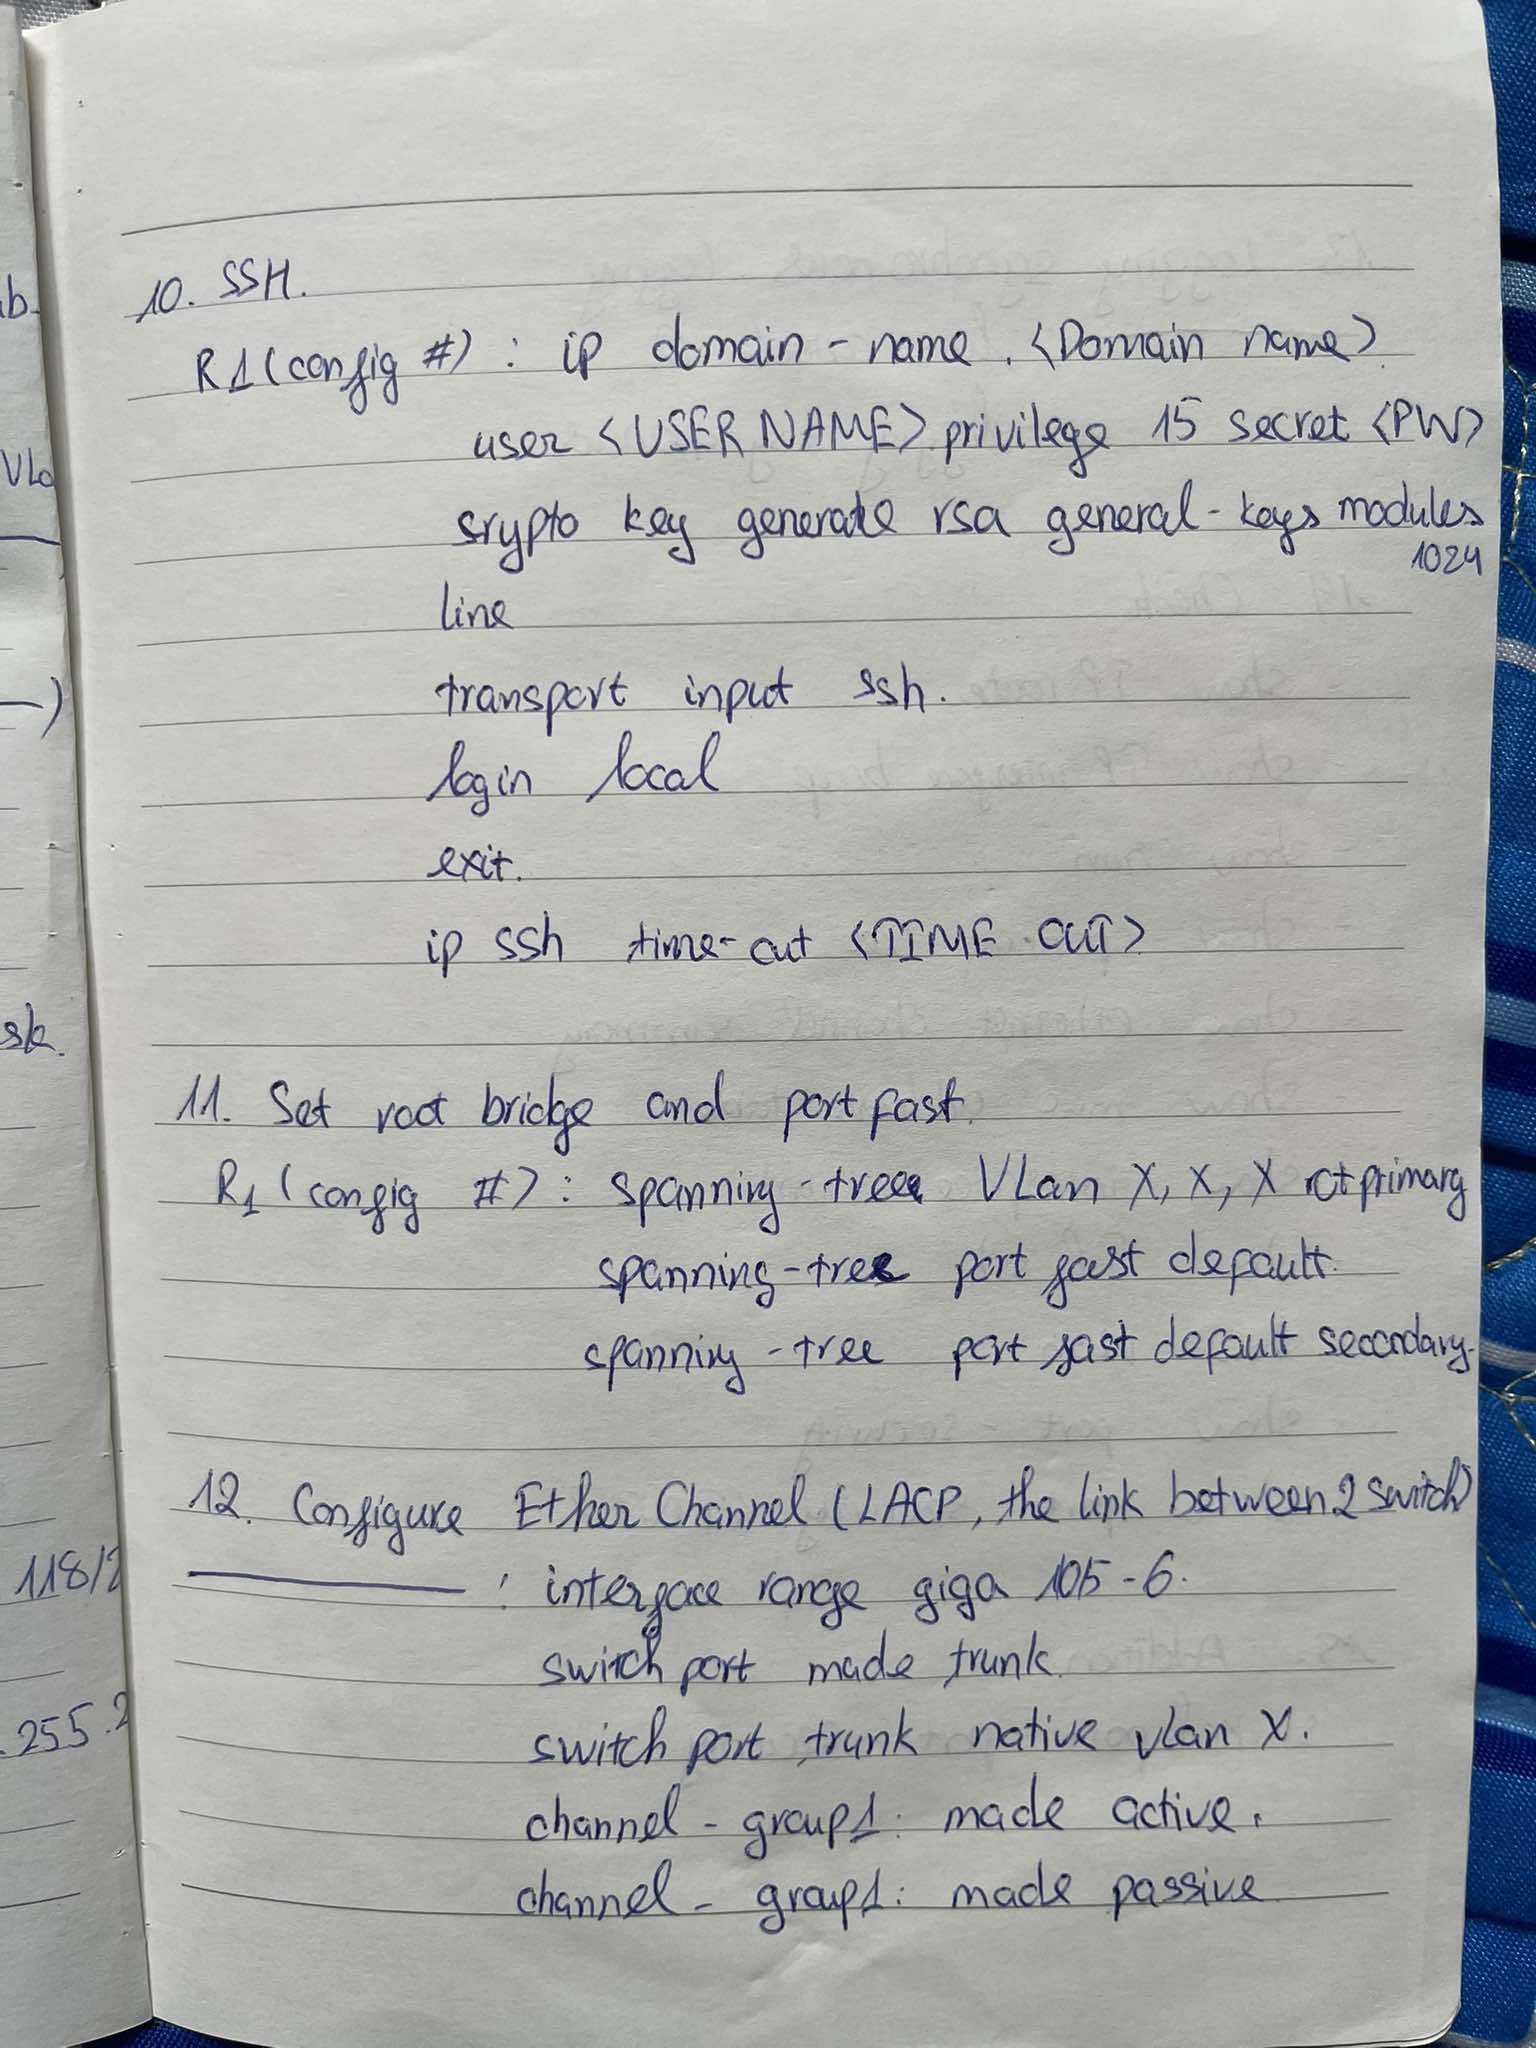 10. SSH.
R1 (config #) : ip domain - name . <Domain name>
user <USER NAME> privilege 15 secret <PW>
srypto key generate rsa general - keys modules
1024
line
transport input ssh.
login local
exit.
ip ssh time-out <TIME OUT>
11. Set root bridge and port fast.
R1 (config #) : spanning - tree Vlan X, X, X rct primary
spanning - tree port fast default.
spanning - tree port fast default secondary.
12. Configure Ether Channel (LACP, the link between 2 switch)
: interface range giga 105 - 6.
switch port made trunk.
switch port trunk native vlan X.
channel - group 1 : made active.
channel - group 1 : made passive
ab.
Vla
)
sk.
118/2
.255.2